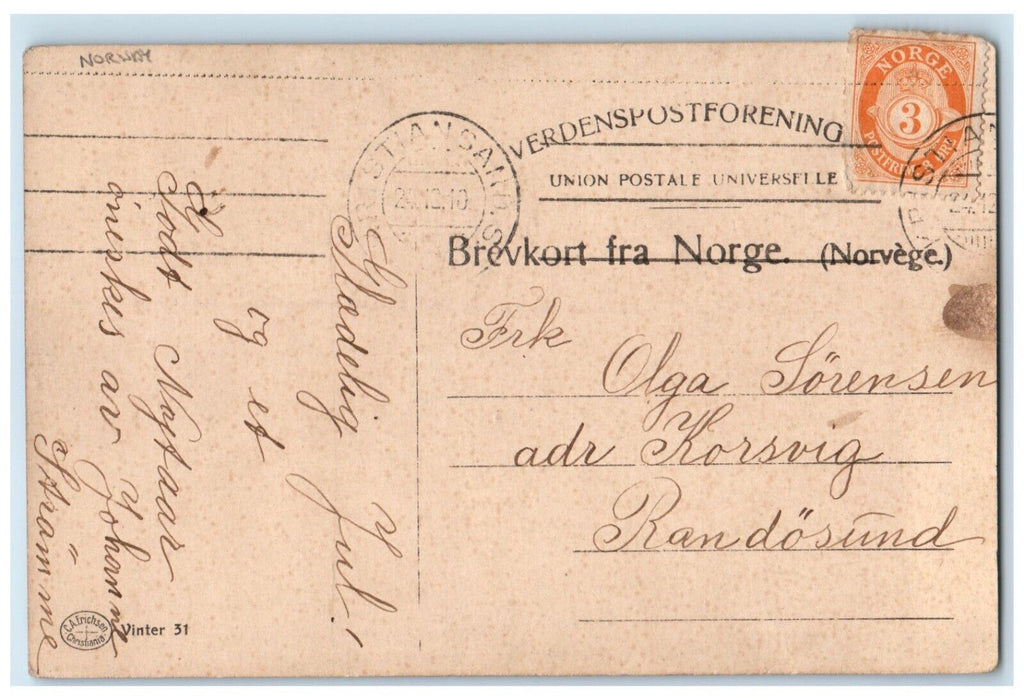 NORWAY
NORGE
3
VERDENSPOSTFORENING
UNION POSTALE UNIVERSELLE
24.12.10
Brevkort fra Norge. (Norvège.)
Glædelig Jul!
og et
Godt Nytaar
önskes av Johanne
Strömme
Frk
Olga Sörensen
adr Korsvig
Randösund
C.A. Erichsen
Christiania
Vinter 31